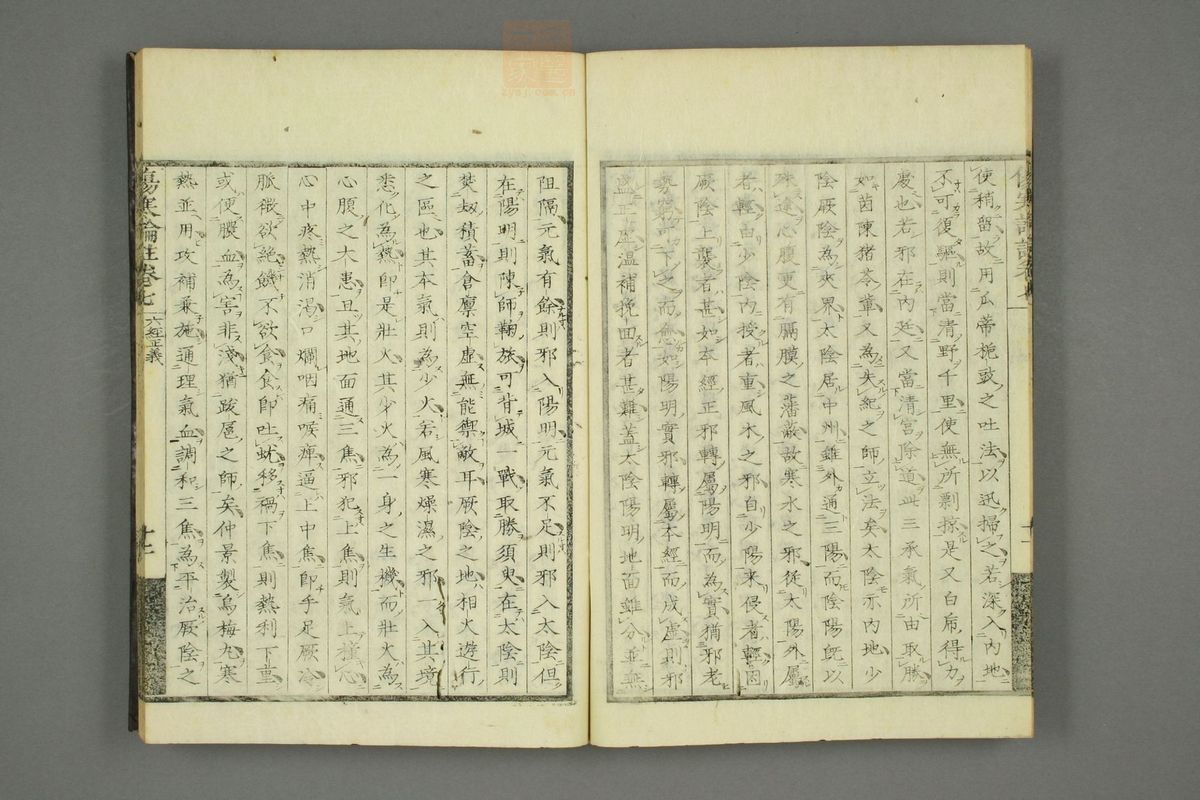 使稍留故用瓜蒂梔豉之吐法以迅掃之若深入內地
不可復驅則當清野千里使無所剽掠是又白虎得力
處也若邪在內廷又當清宮除道此三承氣所由取勝
如茵陳豬苓輩又為失紀之師立法矣太陰亦內地少
陰厥陰為夾界太陰居中州雖外通三陽而陰陽既以
殊途心腹更有膈膜之藩蔽故寒水之邪從太陽外屬
者輕由少陰內授者重風木之邪自少陽來侵者輕因
厥陰上襲者甚如本經正邪轉屬陽明而為實猶邪老
勢窮可下之而愈如陽明實邪轉屬本經而成虛則邪
盛正虛溫補挽回者甚難蓋太陰陽明地面雖分並無
阻隔元氣有餘則邪入陽明元氣不足則邪入太陰但
在陽明則陳師鞠旅可背城一戰取勝須臾在太陰則
焚刼積蓄倉廩空虛無能禦敵耳厥陰之地相火遊行
之區也其本氣則為少火若風寒燥濕之邪一入其境
悉化為熱即是壯火其少火為一身之生機而壯火為
心腹之大患且其地面通三焦邪犯上焦則氣上撞心
心中疼熱消渴口爛咽痛喉痺逼上中焦即手足厥冷
脈微欲絕饑不欲食食即吐蚘移禍下焦則熱利下重
或便膿血為害非淺猶跋扈之師矣仲景製烏梅丸寒
熱並用攻補兼施通理氣血調和三焦為平治厥陰之
傷寒論註卷七
六經正義